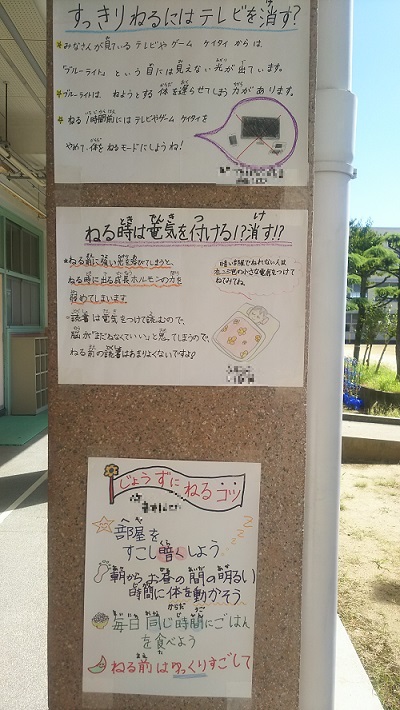 すっきりねるにはテレビを消す?
みなさんが見ているテレビやゲーム ケイタイ からは
「ブルーライト」という目には見えない光が出ています。
ブルーライトは、ねようとする体を遅らせてしまう力があります。
ねる1時間前にはテレビやゲーム ケイタイを
やめて、体をねるモードにしようね!
ねる時は電気を付ける!?消す!?
ねる前に強い光を浴びてしまうと、
ねる時に出る成長ホルモンの力を
弱めてしまいます
読書は電気をつけて読むので、
脳が「まだねなくていい」と思ってしまうので、
ねる前の読書はあまりよくないですよ!
暗い部屋でねれない人は
小さな電気をつけて
ねてみてね。
じょうずにねるコツ
部屋を
すこし暗くしよう
朝からお昼の間の明るい
時間に体を動かそう
毎日同じ時間にごはん
を食べよう
ねる前はゆっくりすごして